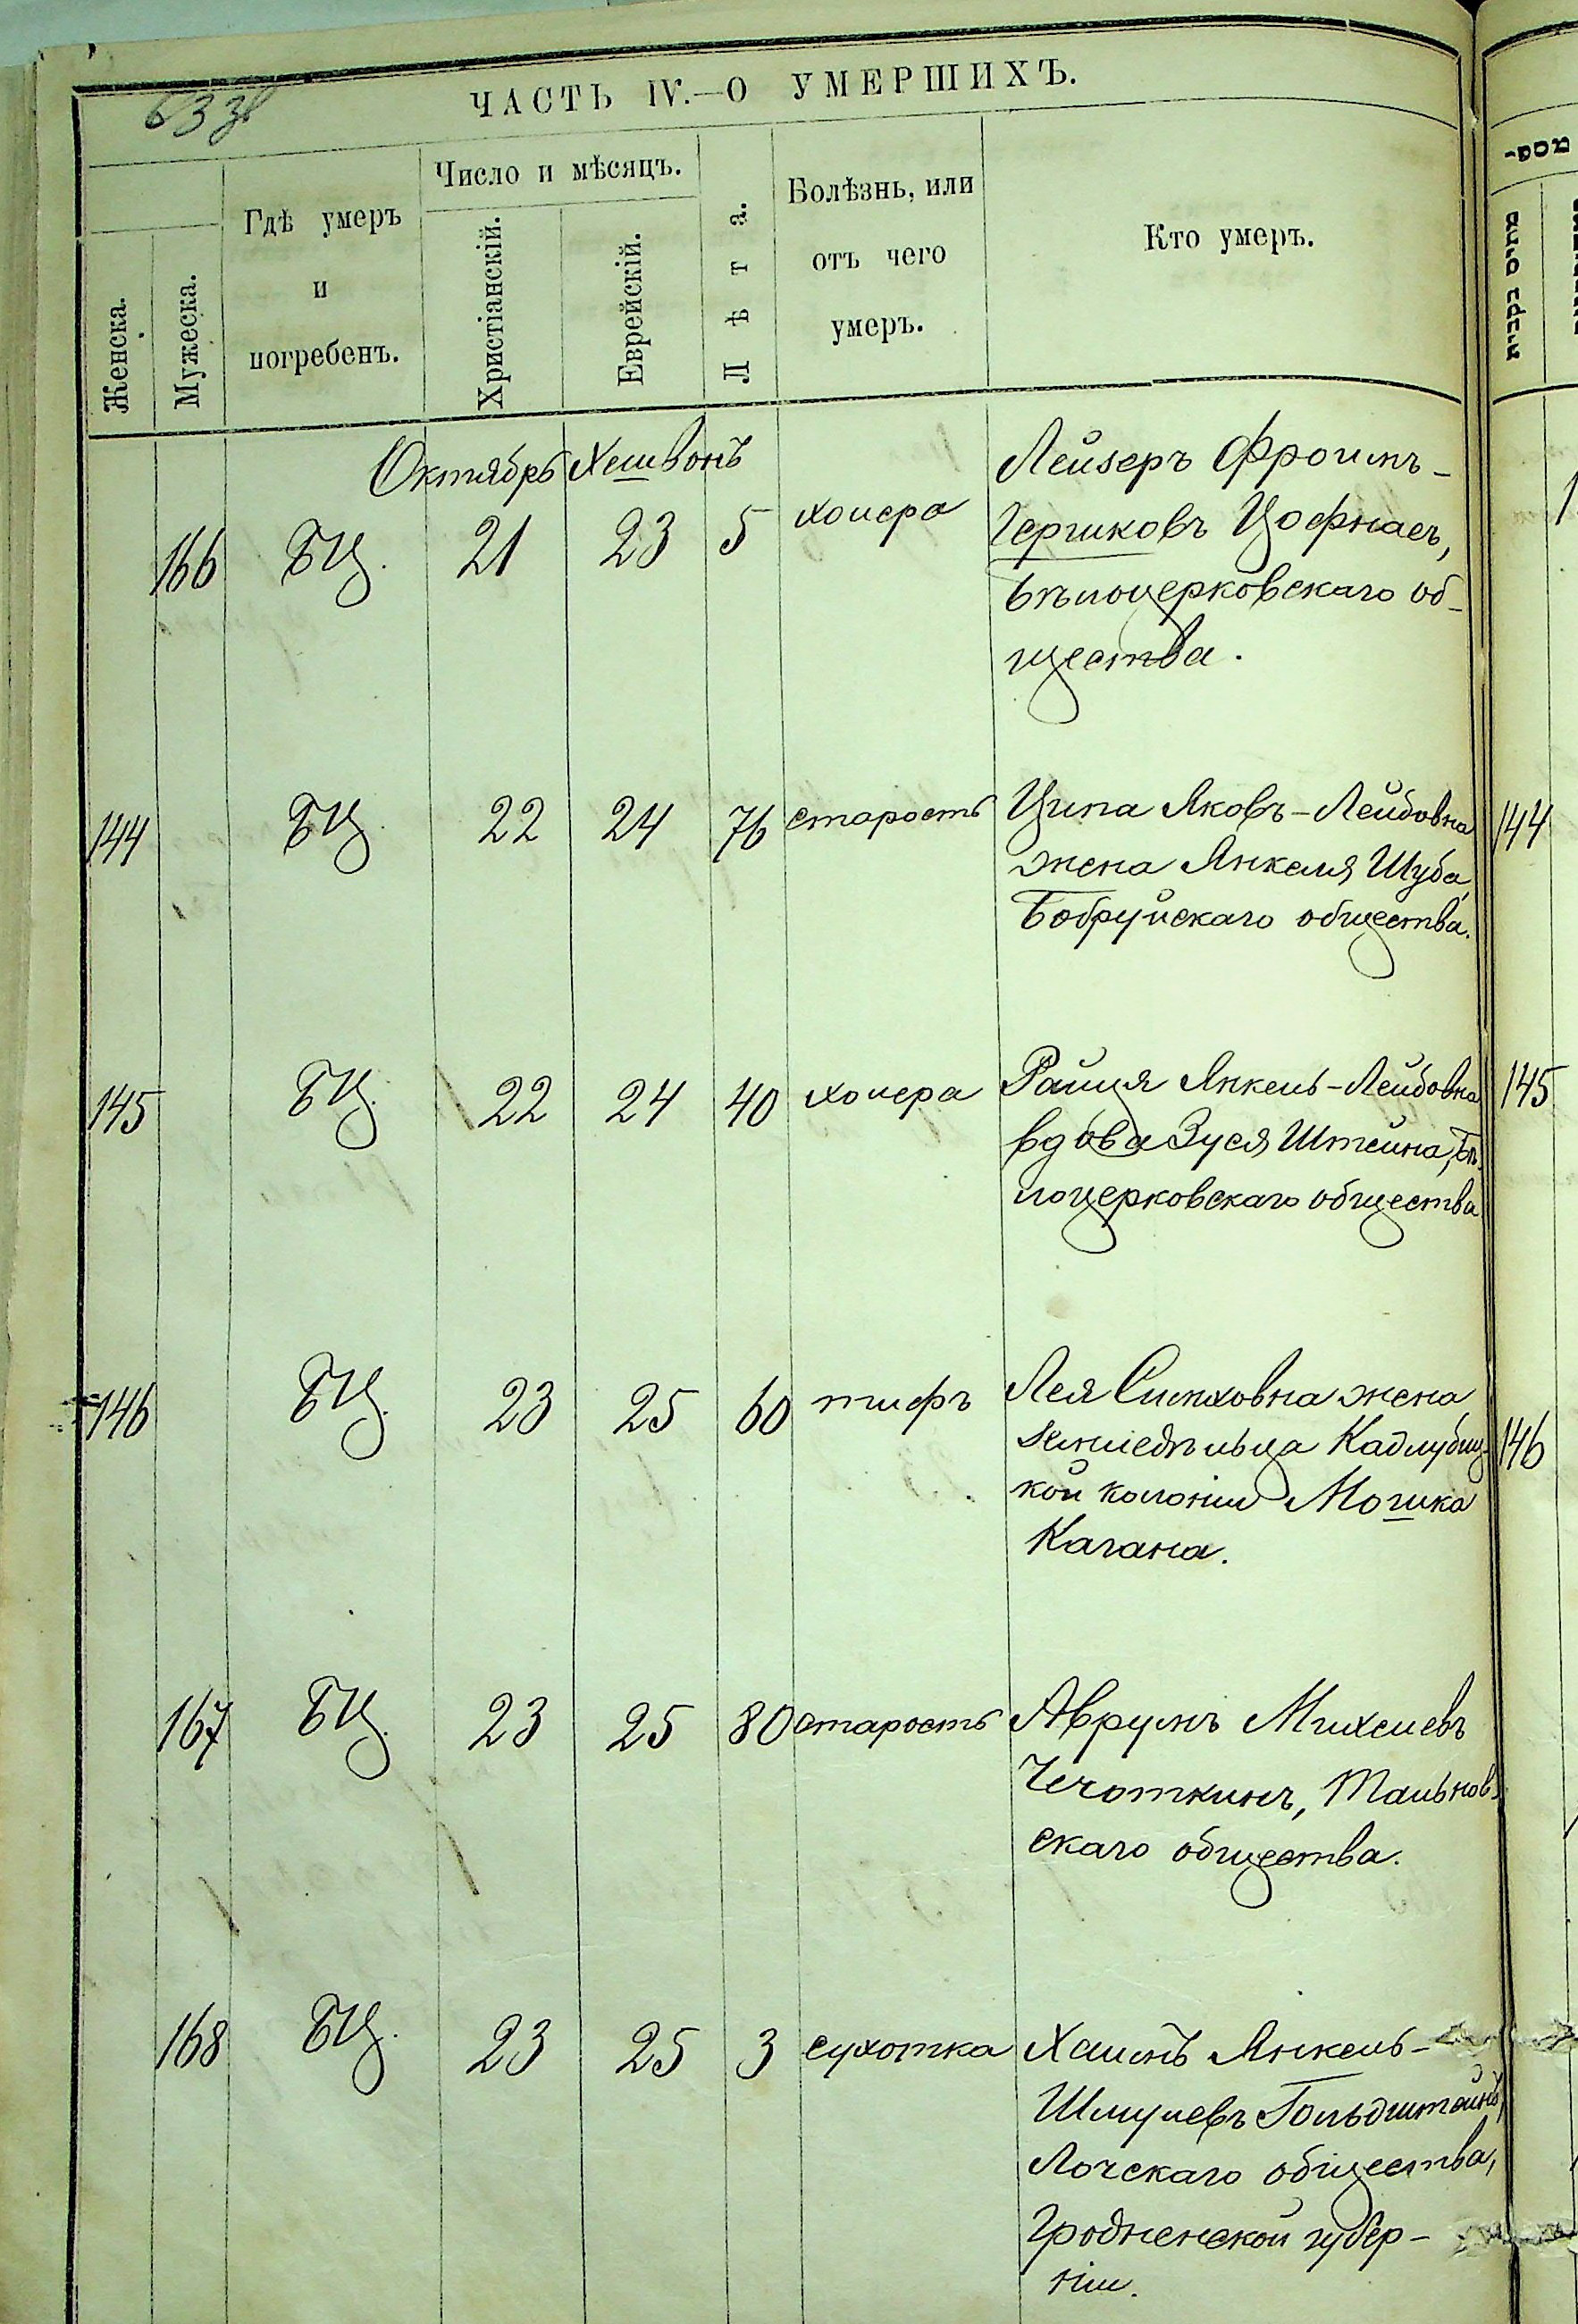 ЧАСТЬ IV.—О УМЕРШИХЪ.
Женска.
Мужеска.
Гдѣ умеръ
и
погребенъ.
Число и мѣсяцъ.
Христіанскій.
Еврейскій.
Лѣта.
Болѣзнь, или
отъ чего
умеръ.
Кто умеръ.
Октябрь Хешвонъ
166 БЦ. 21 23 5 холера Лейзеръ Фроимъ-
Гершковъ Цофнасъ,
Бѣлоцерковскаго об-
щества.
144 БЦ. 22 24 76 старость Ципа Яковъ-Лейбовна
жена Янкеля Шуба,
Бобруйскаго общества.
144
145 БЦ. 22 24 40 холера Райця Янкель-Лейбовна
вдова Зуся Штейна, Бѣ-
лоцерковскаго общества
145
146 БЦ. 23 25 60 тифъ Лея Симховна жена
земледѣльца Кадлубиц-
кой колоніи Мошка
Кагана.
146
167 БЦ. 23 25 80 старость Аврумъ Михелевъ
Чечоткинъ, Тальнов-
скаго общества.
168 БЦ. 23 25 3 сухотка Хаимъ Янкель-
Шмулевъ Гольдштейнъ,
общества,
Гродненской губер-
ніи.